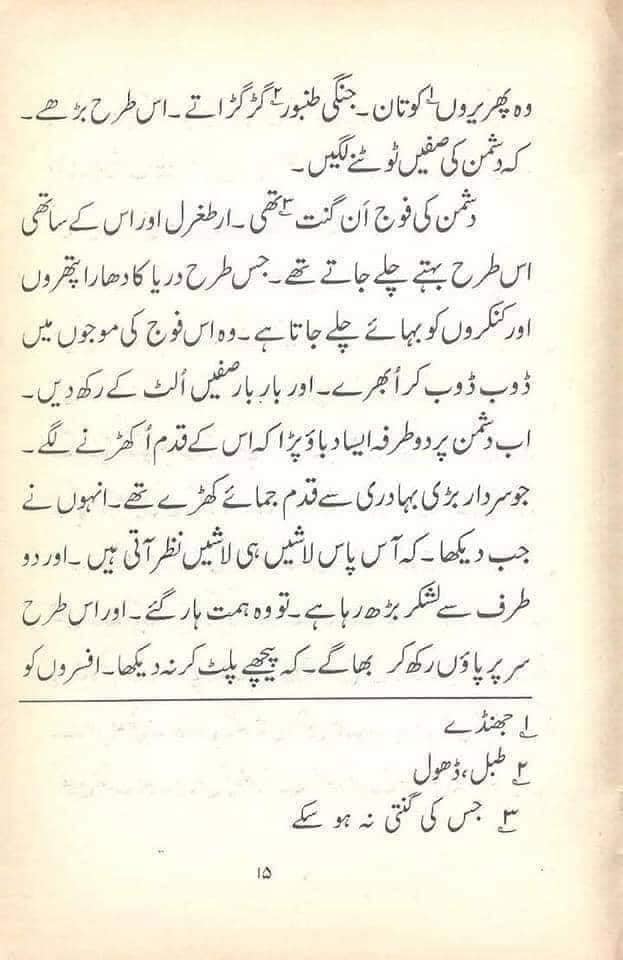 وہ پھریروں۱ کو تان۔ جنگی طنبور۲ گڑگڑاتے۔ اس طرح بڑھے۔
کہ دشمن کی صفیں ٹوٹنے لگیں۔
دشمن کی فوج اَن گنت۳ تھی۔ ارطغرل اور اس کے ساتھی
اس طرح بہتے چلے جاتے تھے۔ جس طرح دریا کا دھارا پتھروں
اور کنکروں کو بہائے چلے جاتا ہے۔ وہ اس فوج کی موجوں میں
ڈوب ڈوب کر اُبھرے۔ اور بار بار صفیں اُلٹ کے رکھ دیں۔
اب دشمن پر دو طرفہ ایسا دباؤ پڑا کہ اس کے قدم اُکھڑنے لگے۔
جو سردار بڑی بہادری سے قدم جمائے کھڑے تھے۔ انہوں نے
جب دیکھا۔ کہ آس پاس لاشیں ہی لاشیں نظر آتی ہیں۔ اور دو
طرف سے لشکر بڑھ رہا ہے۔ تو وہ ہمت ہار گئے۔ اور اس طرح
سر پر پاؤں رکھ کر بھاگے۔ کہ پیچھے پلٹ کر نہ دیکھا۔ افسروں کو
۱ جھنڈے
۲ طبل، ڈھول
۳ جس کی گنتی نہ ہو سکے
۱۵